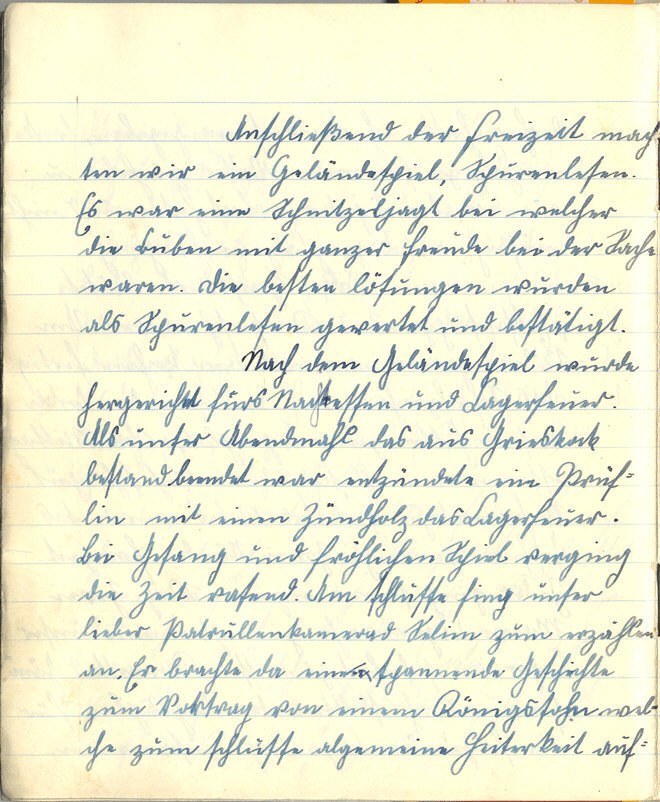 Anschließend der Freizeit mach
ten wir ein Geländespiel, Spurenlesen.
Es war eine Schnitzeljagt bei welcher
die Buben mit ganzer Freude bei der Sache
waren. Die besten lösungen wurden
als Spurenlesen gewertet und bestätigt.
Nach dem Geländespiel wurde
hergericht fürs Nachtessen und Lagerfeuer.
Als unser Abendmahl das aus Grieskock
bestand beendet war entzündete ein Prüf=
lin mit einen Zündholz das Lagerfeuer.
Bei Gesang und fröhlichen Spiel verging
die Zeit rasend. Am schlusse fing unser
lieber Patrullenkamerad Selim zum erzählen
an. Er brachte da eine spannende Geschichte
zum Vortrag von einem Königssohn wel-
che zum schlusse algemeine Heiterkeit auf=